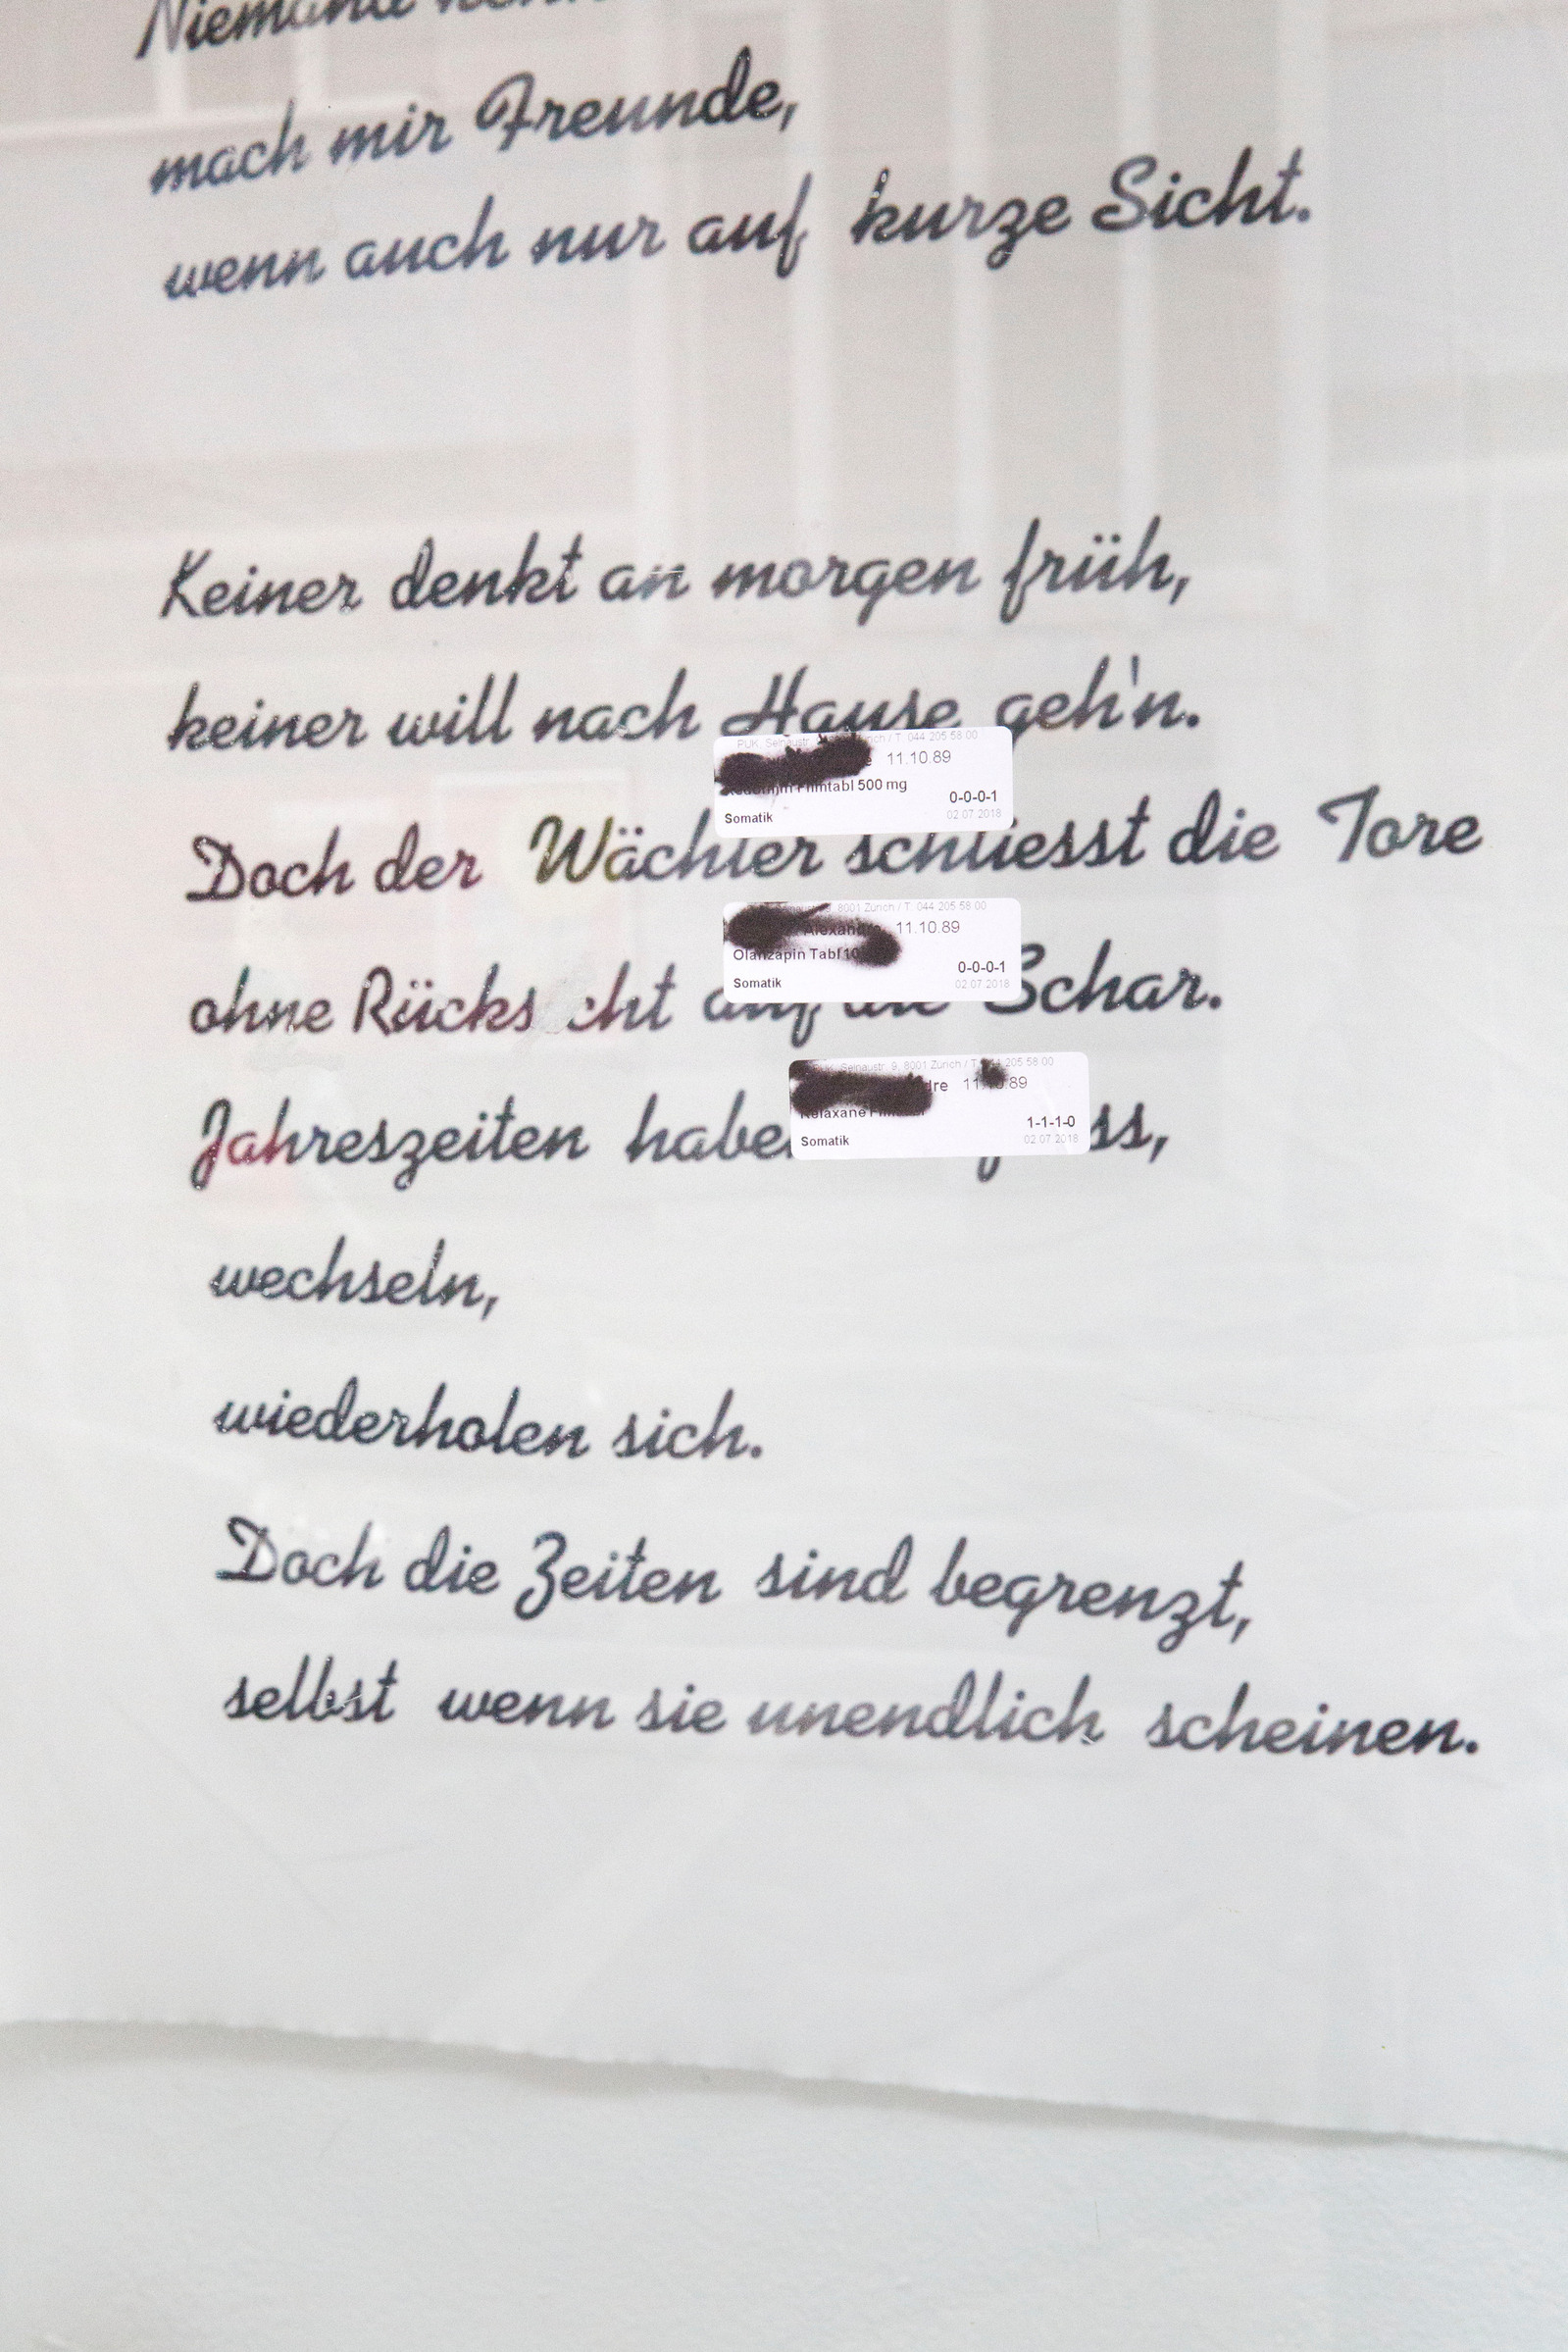 Niemand
mach mir Freunde,
wenn auch nur auf kurze Sicht.
Keiner denkt an morgen früh,
keiner will nach Hause geh'n.
PUK, / T. 044 205 58 00
11.10.89
Filmtabl 500 mg
0-0-0-1
Somatik 02.07.2018
Doch der Wächter schliesst die Tore
8001 Zürich / T. 044 205 58 00
11.10.89
Olanzapin Tabl 10
0-0-0-1
Somatik 02.07.2018
ohne Rücks cht auf die Schar.
9, 8001 Zürich / T. 205 58 00
dre 89
Relaxane
1-1-1-0
Somatik 02.07.2018
Jahreszeiten ss,
wechseln,
wiederholen sich.
Doch die Zeiten sind begrenzt,
selbst wenn sie unendlich scheinen.